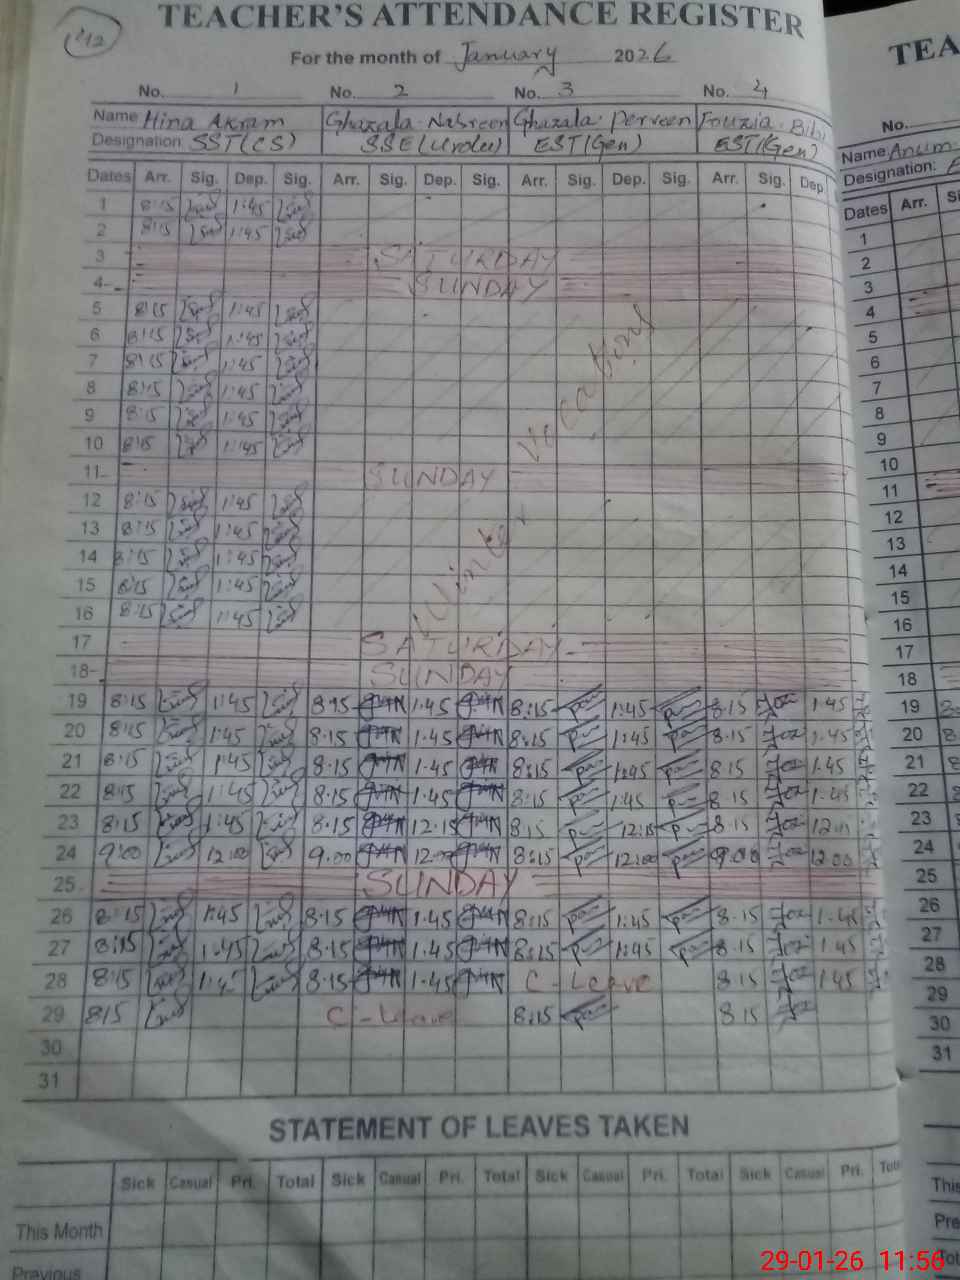 1/12
TEACHER'S ATTENDANCE REGISTER
For the month of January 2026
No. 1 No. 2 No. 3 No. 4
Name Hina Akram Ghazala Nasreen Ghazala Perveen Fouzia Bibi
Designation: SST(CS) SSE(Urdu) EST(Gen) EST(Gen)
Dates Arr. Sig. Dep. Sig. Arr. Sig. Dep. Sig. Arr. Sig. Dep. Sig. Arr. Sig. Dep.
1 8:15 1:45
2 8:15 1:45
3 SATURDAY
4 SUNDAY
5 8:15 1:45
6 8:15 1:45
7 8:15 1:45
8 8:15 1:45
9 8:15 1:45
10 8:15 1:45
11 SUNDAY
12 8:15 1:45
13 8:15 1:45
14 8:15 1:45
15 8:15 1:45
16 8:15 1:45
Winter Vacations
17 SATURDAY
18 SUNDAY
19 8:15 1:45 8.15 1.45 8:15 1:45 8.15 1.45
20 8:15 1:45 8.15 1.45 8:15 1:45 8.15 1.45
21 8:15 1:45 8.15 1.45 8:15 1:45 8.15 1.45
22 8:15 1:45 8.15 1.45 8:15 1:45 8.15 1.45
23 8:15 1:45 8.15 12.15 8:15 12:15 8.15
24 9:00 12:00 9.00 12.00 8:15 12:00 9.00 12.00
25 SUNDAY
26 8:15 1:45 8.15 1.45 8:15 1:45 8.15 1.45
27 8:15 1:45 8.15 1.45 8:15 1:45 8.15 1.45
28 8:15 1:45 8.15 1.45 C-Leave 8.15 1.45
29 8:15 C-Leave 8:15 8.15
30
31
STATEMENT OF LEAVES TAKEN
Sick Casual Pri. Total Sick Casual Pri. Total Sick Casual Pri. Total Sick Casual Pri.
This Month
Previous
TEA
No.
Name Anum
Designation:
Dates Arr.
1
2
3
4
5
6
7
8
9
10
11
12
13
14
15
16
17
18
19
20
21
22
23
24
25
26
27
28
29
30
31
This
29-01-26 11:56